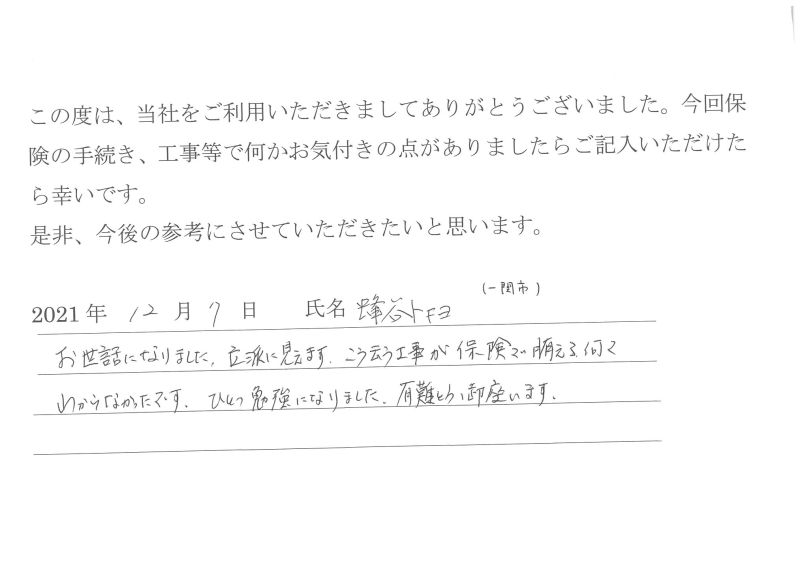 この度は、当社をご利用いただきましてありがとうございました。今回保
険の手続き、工事等で何かお気付きの点がありましたらご記入いただけた
ら幸いです。
是非、今後の参考にさせていただきたいと思います。
(一関市)
2021年 12月 7日 氏名 蜂谷トキヨ
お世話になりました。立派に見えます。こう云う工事が保険で賄える何て
わからなかったです。ひとつ勉強になりました。有難とう御座います。